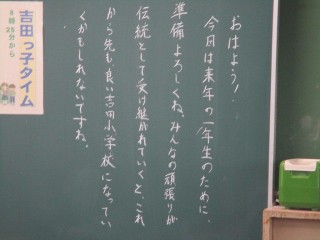 おはよう!
今日は来年の一年生のために、
準備よろしくね。みんなの頑張りが
伝統として受け継がれていくと、これ
から先も良い吉田小学校になってい
くかもしれないですね。
吉田っ子タイム
8時25分から